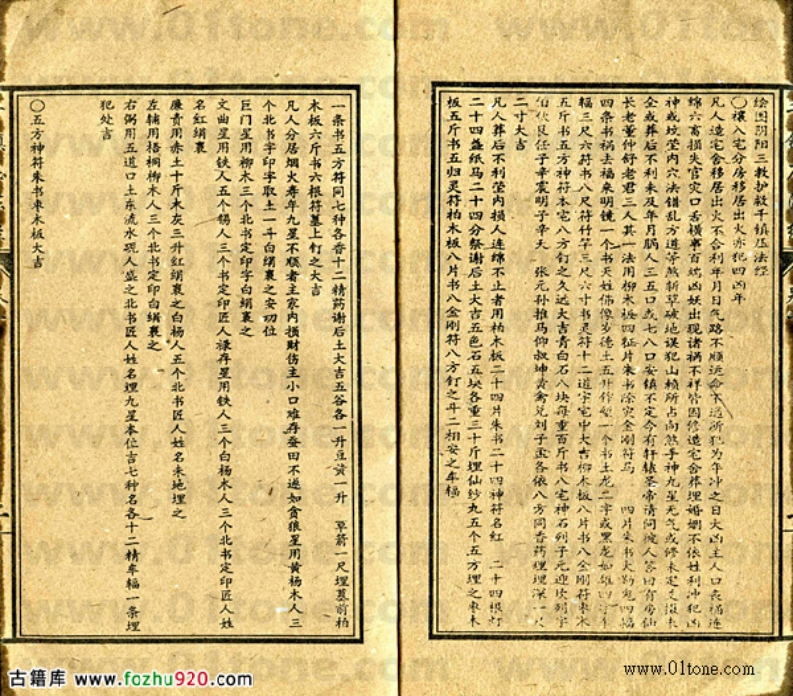 绘图阴阳三教护救千镇压法经
○禳入宅分房移居出火亦犯四凶年
凡人造宅舍移居出火不合利年月日气路不顺运命不通所犯为年冲之日大凶主人口丧祸连
绵六畜损失官灾口舌横事百端凶妖出现诸祸不祥皆因修造宅舍葬埋婚姻不依姓利冲犯凶
神或坟茔内穴法错乱方道等煞斩草破地误犯山赖所占向煞手神九星无气或修未定
全或葬后不利未及年月祸人三五口或七八口安镇不定今有轩辕圣帝请问
长老董仲舒老君三人其一法用柳木板四片朱书除灾金刚符
四条书祸去福来明镜一个书天仙佛像岁德土五升作
辐三尺六符书八尺符竹竿三尺六寸书灵符十二道宇宅中大吉柳木板八片书八金刚符枣木
五斤书五方神符本宅八方钉之久远大吉青白石八块每重百斤书八宅神石列子元
张元孙推马仰叔坤黄禽兑刘子 各依八方同香药埋理深一尺
二寸大吉
凡人葬后不利茔内损人连绵不止者用柏木板二十四片朱书二十四神符名红 二十四根钉
二十四盏纸马二十四分祭谢后土大吉五色石五块各重三十斤埋仙纱九五个五方埋之枣木
板五斤书五归灵符柏木板八片书八金刚符八方钉之斗二相安之牟辐
一条书五方符同七种各香十二精药谢后土大吉五谷各一升豆黄一升 草箭一尺埋墓前柏
木板六斤书六根符墓上钉之大吉
凡人分居烟火寿年九星不顺者主家内损财伤主小口难存蚕田不遂如贪狼星用黄杨木人三
个北书字印字取土一斗白绢裹之安功位
巨门星用柳木三个北书定印字白绢裹之
文曲星用铁人五个锡人三个书定印匠人禄存星用铁人三个白杨木人三个北书定印匠人姓
名红绢裹
廉贵用赤土十斤木灰三升红绢裹之白杨人五个北书匠人姓名来地埋之
左辅用梧桐柳木人三个北书定印白绢裹之
右弼用五道口土东流水砚人盛之北书匠人姓名埋九星本位吉七种名各十二精牟辐一条埋
犯处吉
○五方神符朱书枣木板大吉
古籍库 www.fozhu920.com
www.01tone.com